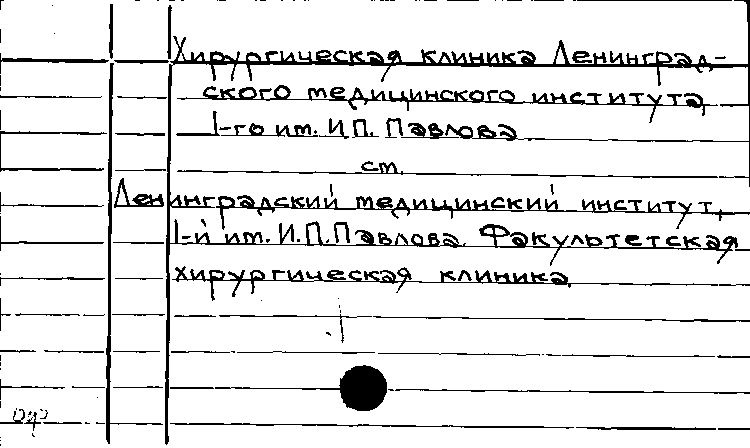 Хирургическая клиника Ленинград-
ского медицинского института,
1-го им. И.П. Павлова
см.
Ленинградский медицинский институт,
1-й им. И.П. Павлова. Факультетская
хирургическая клиника.